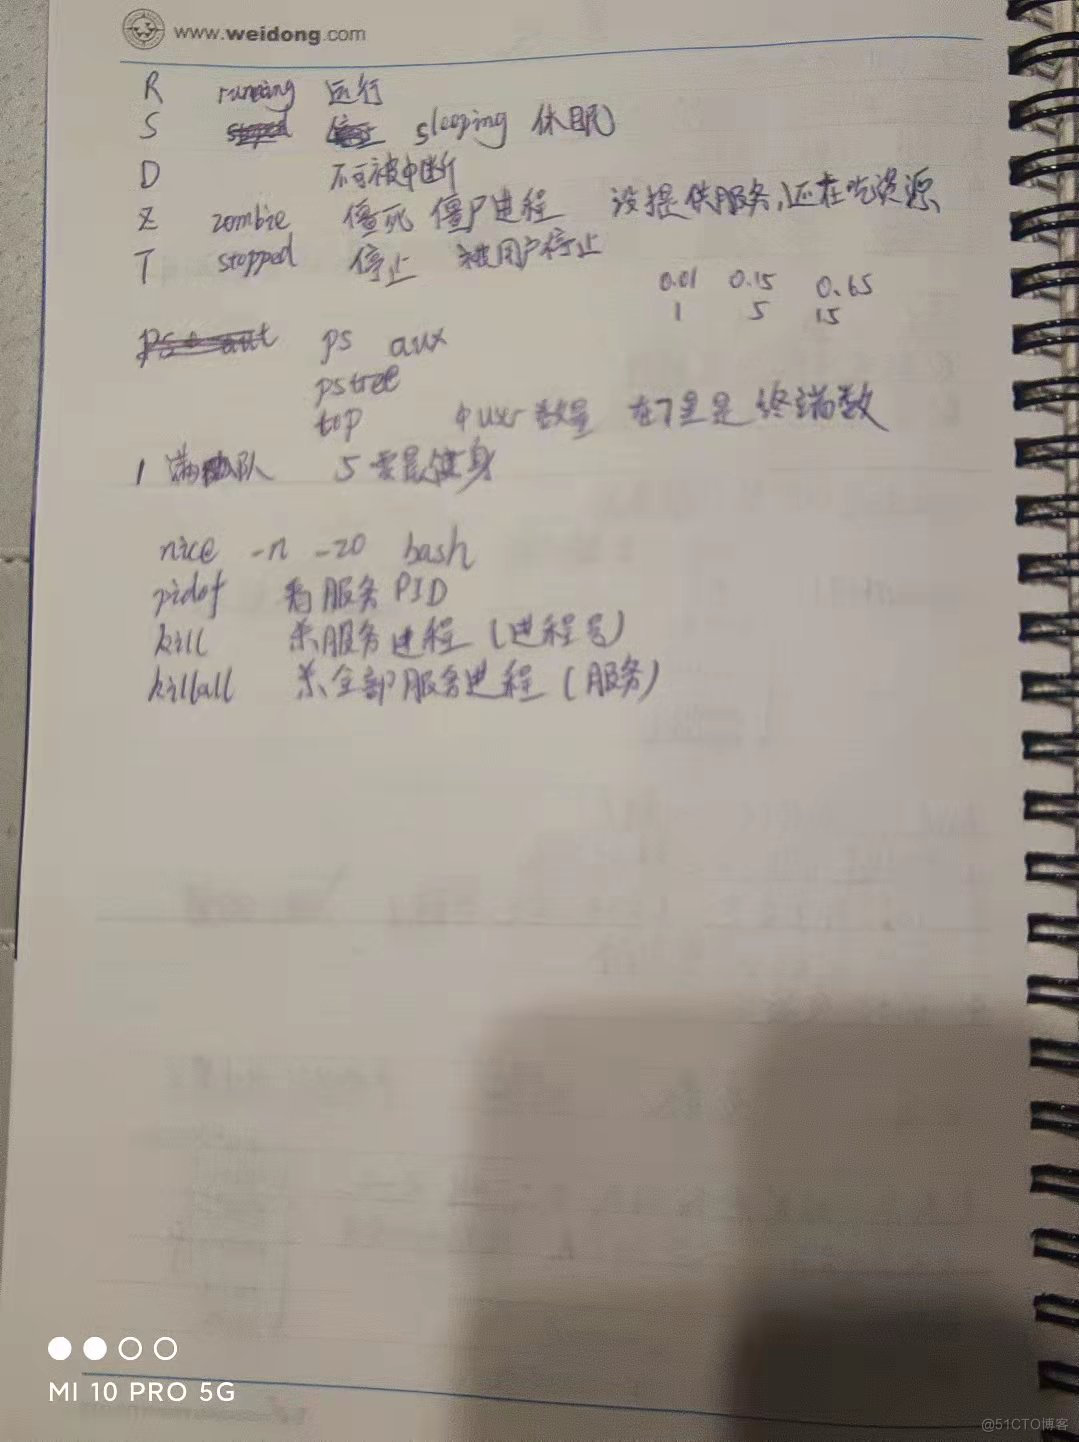 www.weidong.com
R running 运行
S sleeping 休眠
D 不可被中断
Z zombie 僵死 僵尸进程 没提供服务,还在吃资源
T stopped 停止 被用户停止
0.01 0.15 0.65
1 5 15
ps aux
pstree
top 中user数量 在7里是 终端数
1 满 队 5
nice -n -20 bash
pidof 看服务PID
kill 杀服务进程(进程号)
killall 杀全部服务进程(服务)
MI 10 PRO 5G
@51CTO博客